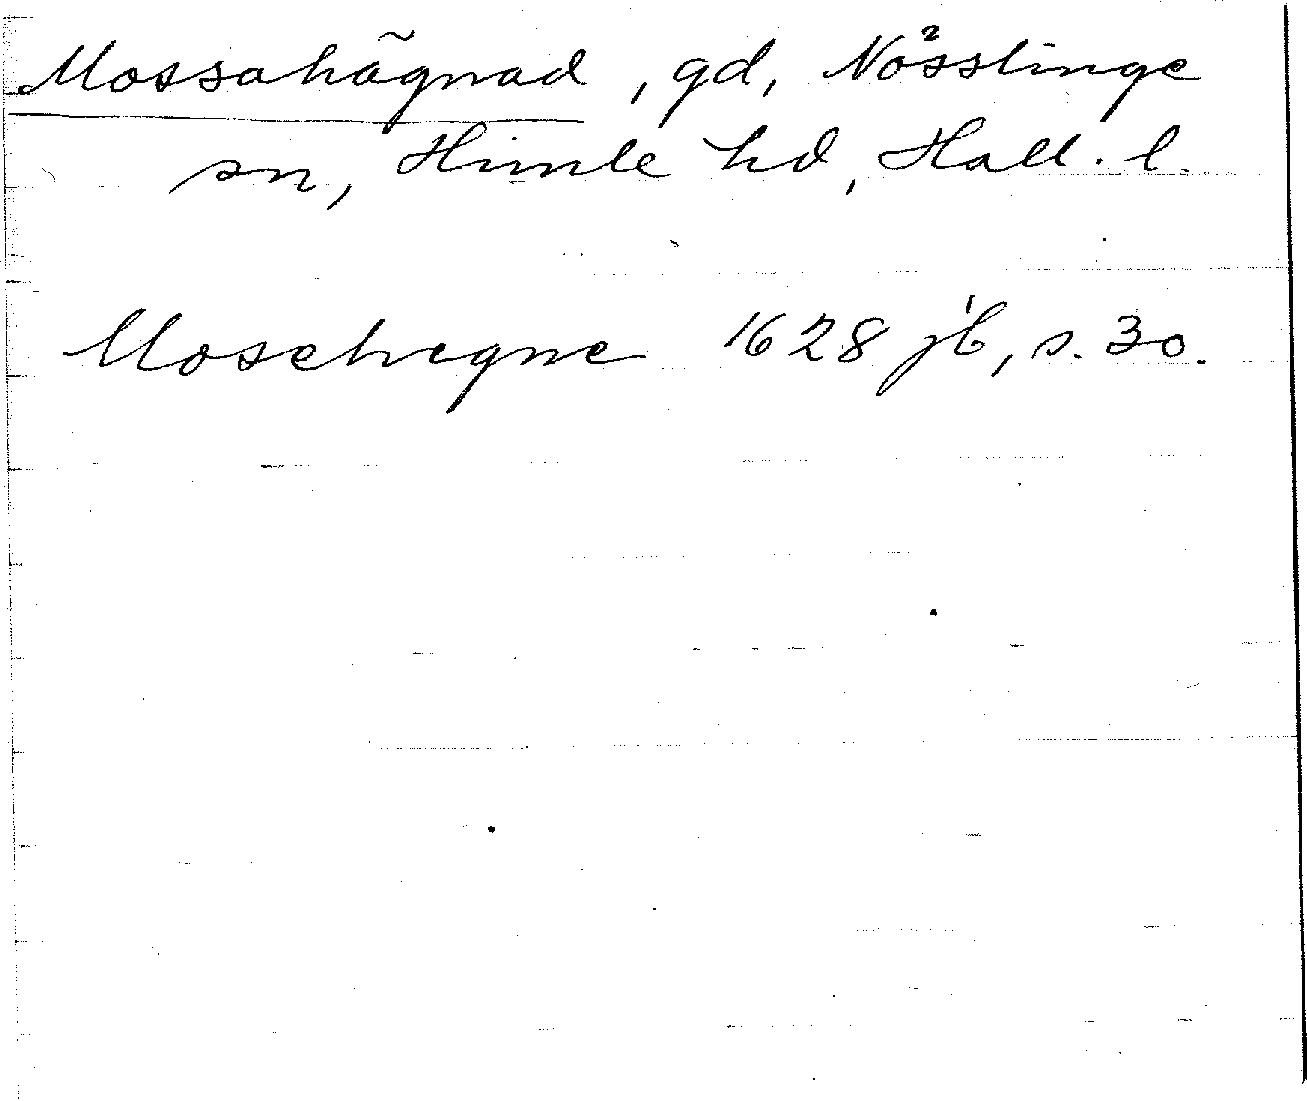 Mossahägnad, gd, Nösslinge
sn, Himle hd, Hall. l.
Mosehegne 1628 jb, s. 30.